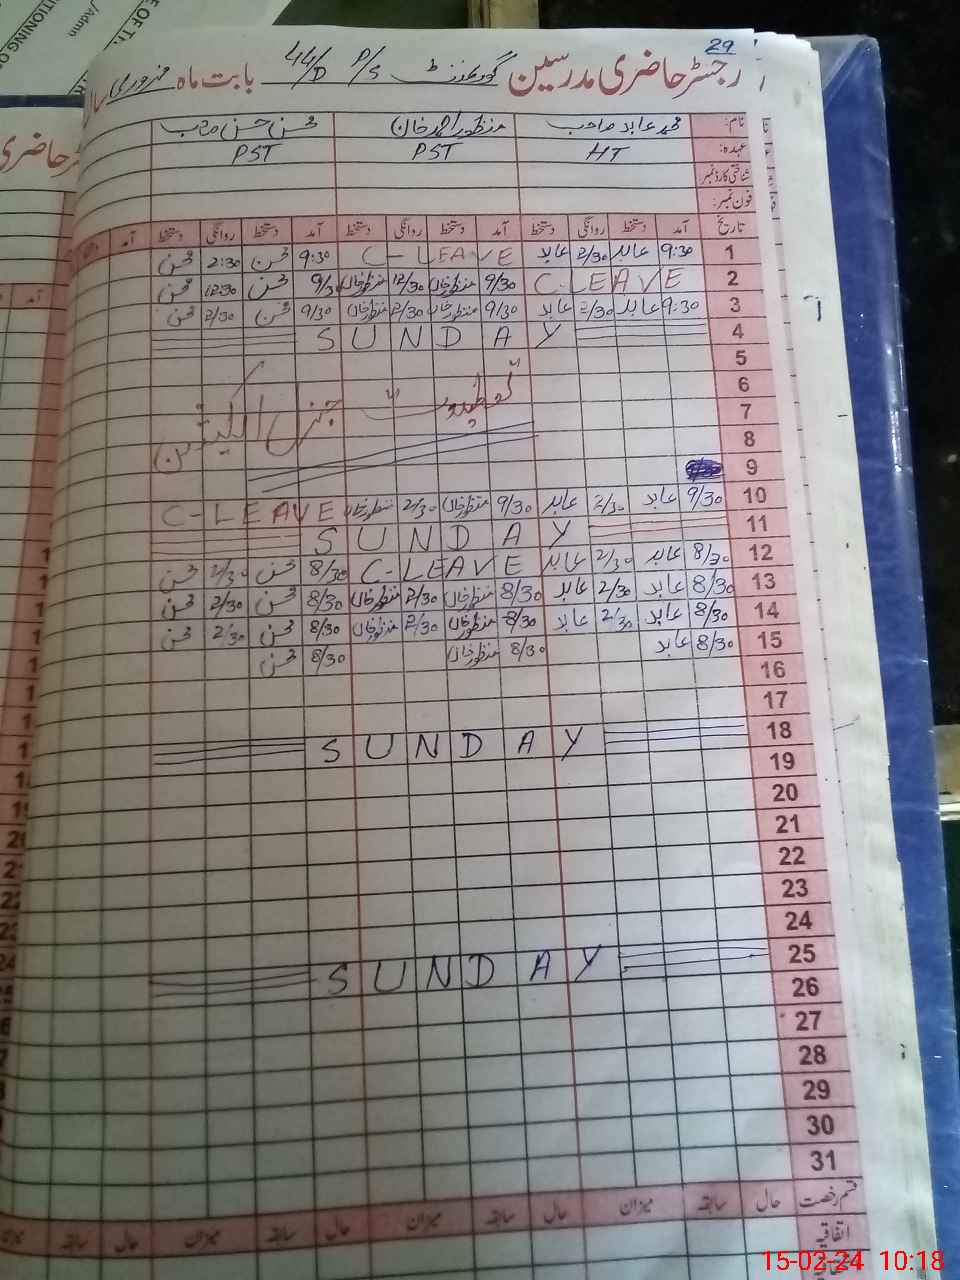 29
رجسٹر حاضری مدرسین گورنمنٹ P/S 44/D بابت ماہ فروری سال
نام: محمد عابد صاحب منظور احمد خان محسن حسن صاحب
عہدہ: HT PST PST
شناختی کارڈ نمبر
فون نمبر:
تاریخ آمد دستخط روانگی دستخط آمد دستخط روانگی دستخط آمد دستخط روانگی دستخط آمد
1 9:30 عابد 2/30 عابد C-LEAVE 9:30 محسن 2:30 محسن
2 C-LEAVE 9/30 منظور خان 12/30 منظور خان 9/30 محسن 12:30 محسن
3 9:30 عابد 2/30 عابد 9/30 منظور خان 2/30 منظور خان 9/30 محسن 2/30 محسن
4 SUNDAY
5
6
7 جنرل الیکشن
8
9
10 9/30 عابد 2/30 عابد 9/30 منظور خان 2/30 منظور خان C-LEAVE
11 SUNDAY
12 8/30 عابد 2/30 عابد C-LEAVE 8/30 محسن 2/30 محسن
13 8/30 عابد 2/30 عابد 8/30 منظور خان 2/30 منظور خان 8/30 محسن 2/30 محسن
14 8/30 عابد 2/30 عابد 8/30 منظور خان 2/30 منظور خان 8/30 محسن 2/30 محسن
15 8/30 عابد 8/30 منظور خان 8/30 محسن
16
17
18 SUNDAY
19
20
21
22
23
24
25 SUNDAY
26
27
28
29
30
31
قسم رخصت حال سابقہ میزان حال سابقہ میزان حال سابقہ میزان حال سابقہ
اتفاقیہ
15-02-24 10:18